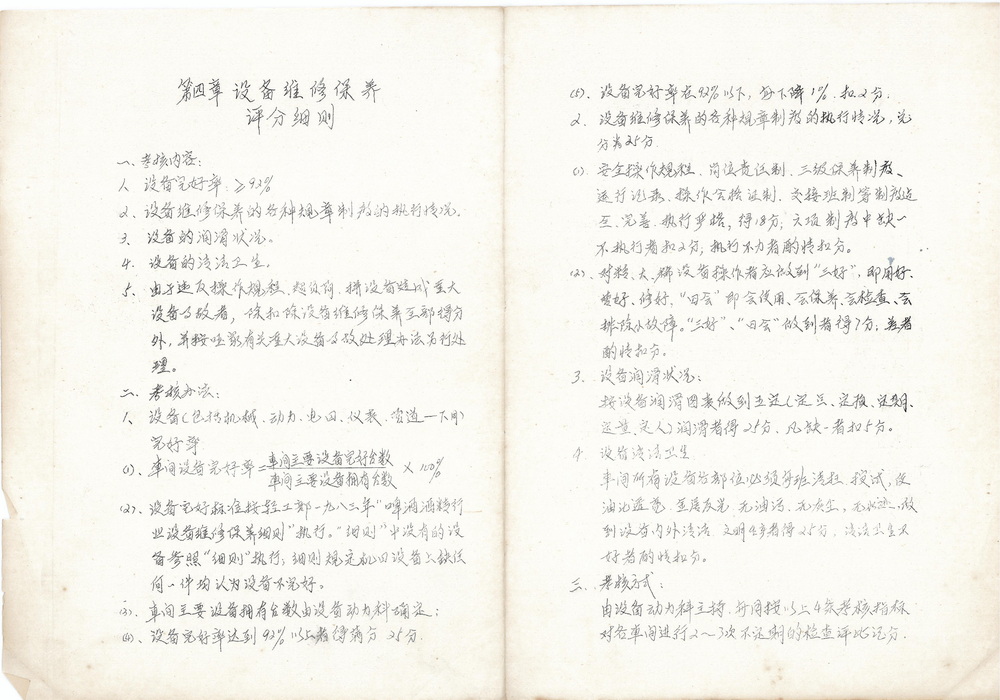 第四章 设备维修保养
评分细则
一、考核内容：
1、设备完好率：≥92%
2、设备维修保养的各种规章制度的执行情况。
3、设备的润滑状况。
4、设备的清洁卫生。
5、由于违反操作规程、超负荷、拼设备造成重大
设备事故者，除扣除设备维修保养全部得分
外，并按啤酒有关重大设备事故处理办法另行处
理。
二、考核办法：
1、设备（包括机械、动力、电四、仪表、管道一下同）
完好率
(1)、车间设备完好率=车间主要设备完好台数/车间主要设备拥有台数×100%
(2)、设备完好标准按轻工部一九八三年“啤酒酒精行
业设备维修保养细则”执行。“细则”中没有的设
备参照“细则”执行；细则规定机四设备上缺任
何一件均认为设备不完好。
(3)、车间主要设备拥有台数由设备动力科确定；
(4)、设备完好率达到92%以上者得满分25分.
(5)、设备完好率在92%以下，每下降1%.扣2分.
2、设备维修保养的各种规章制度的执行情况，总
分为25分.
(1)、安全操作规程、岗位责任制、三级保养制度、
运行记录、操作合格证制、交接班制等制度健
全、完善、执行严格，得18分；六项制度中缺一
不执行者扣2分；执行不力者酌情扣分。
(2)、对精、大、稀设备操作者应做到“三好”，即用好、
管好、修好，“四会”即会使用、会保养、会检查、会
排除小故障。“三好”、“四会”做到者得7分；差者
酌情扣分。
3、设备润滑状况：
按设备润滑图表做到五定（定点、定质、定期、
定量、定人）润滑者得25分、凡缺一者扣5分。
4、设备清洁卫生
车间所有设备各部位必须每班清扫、擦拭，使
油沁透亮、金属发光、无油污、无灰尘、无水迹、做
到设备内外清洁、文明生产者得25分，清洁卫生不
好者酌情扣分。
三、考核方式：
由设备动力科主持、每月按以上4条考核指标
对各车间进行2～3次不定期的检查评比记分.